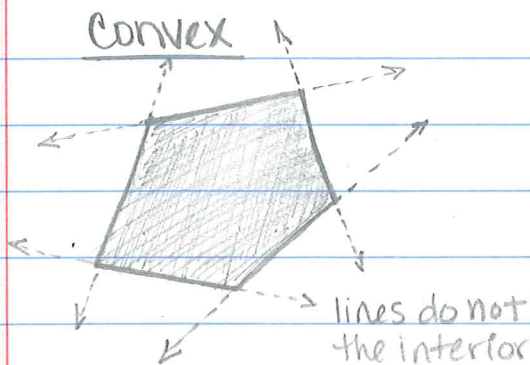 Convex
lines do not
the interior